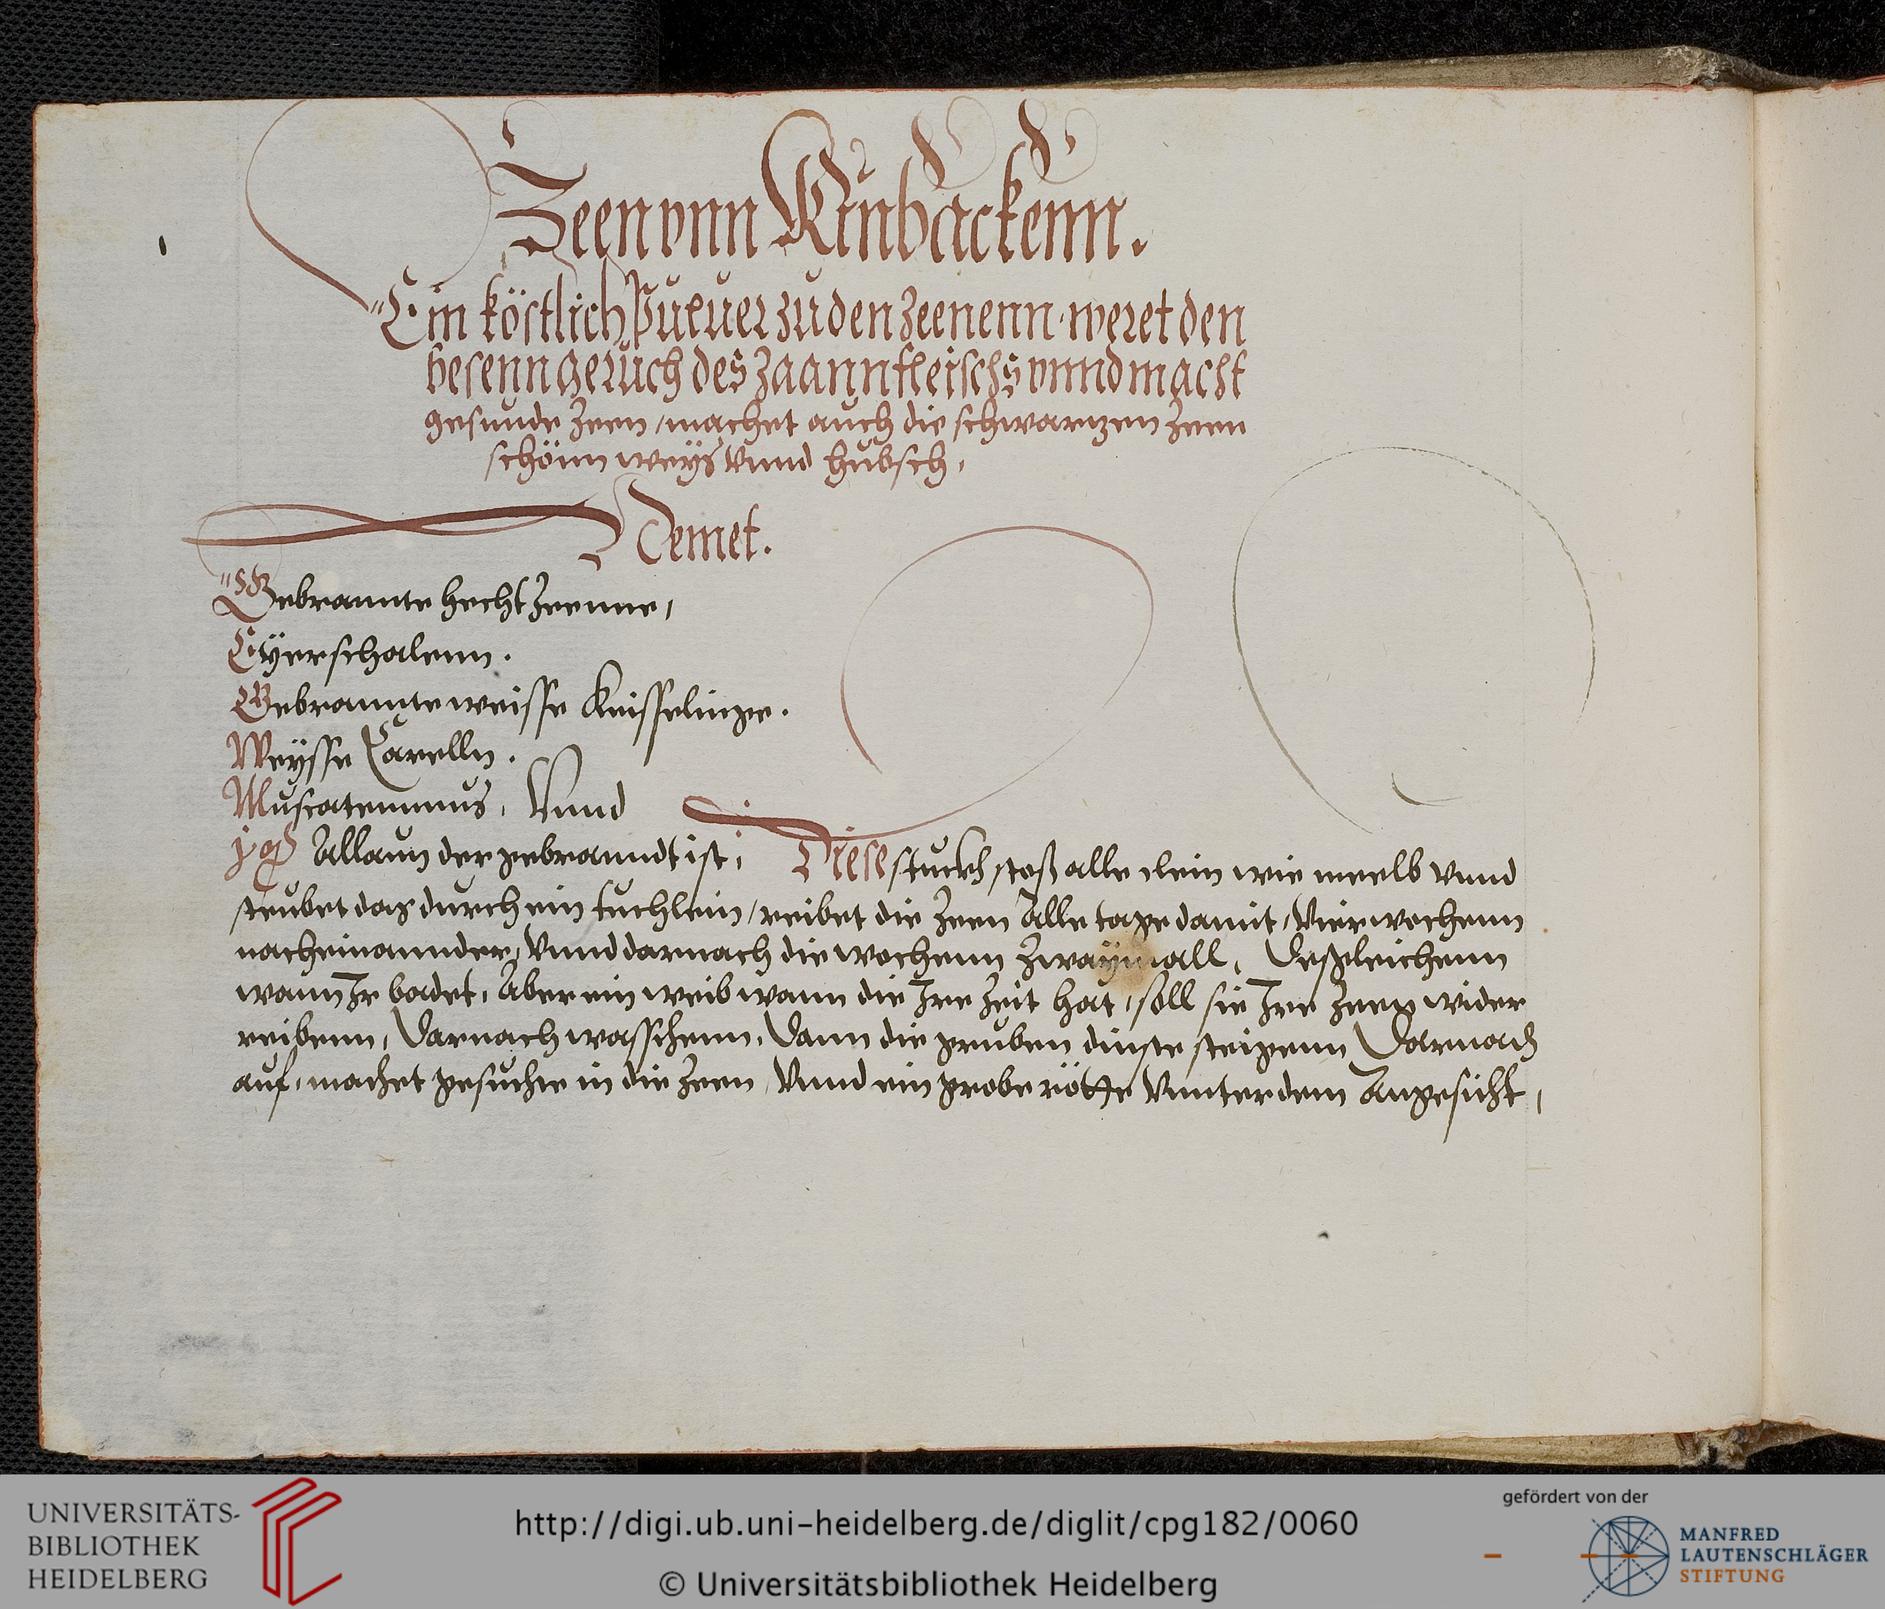 Zeen vnn Kinbackenn.
Ein köstlich Puluer zu den Zeenenn weret den
besenn geruch des Zaannfleischs vnnd macht
gesunde Zeen / machet auch die schwarzen Zeen
schönn weys Vnnd hubsch,
Nemet.
Gebrannte hecht Zeenne,
Eyerschalenn.
Gebrannte weisse Keisselinge.
Weysse Carelln.
Muscatennnus, Vnnd
Allaun der gebranndt ist, Diese stuckh stoß alle clein wie meelb Vnnd
steubet das durch ein tuchlein / reibet die Zeen Alle tage damit / Vier wochenn
nacheinannder, Vnnd darnach die wochenn Zwaymall, Desgleichenn
wann Ir badet, Aber ein weib wann die Ire Zeit hat, soll sie Ire Zeen wider
reibenn, Darnach wasschenn, Dann die gruben dinste steigenn Darnach
auf, machet gesuchte in die Zeen, Vnnd ein grobe rötte Vnnter dem Angesicht,
UNIVERSITÄTS-
BIBLIOTHEK
HEIDELBERG
http://digi.ub.uni-heidelberg.de/diglit/cpg182/0060
© Universitätsbibliothek Heidelberg
gefördert von der
MANFRED
LAUTENSCHLÄGER
STIFTUNG